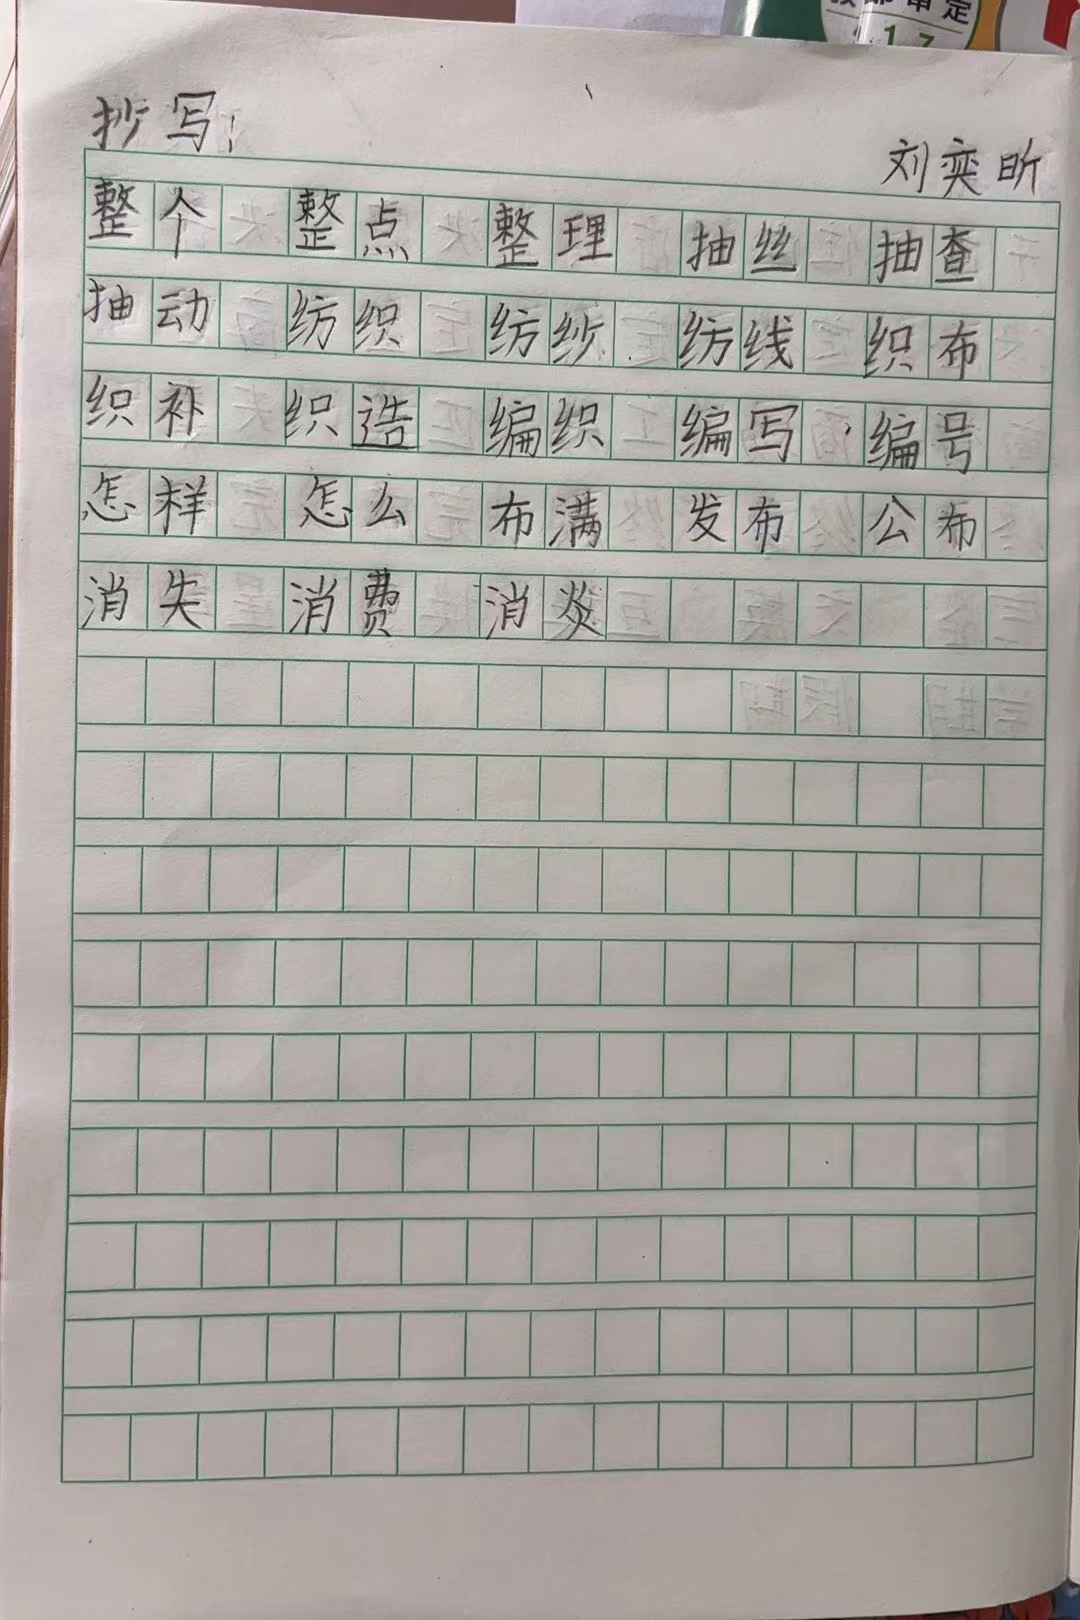 审定
17
抄写:
刘奕昕
整个 整点 整理 抽丝 抽查
抽动 纺织 纺纱 纺线 织布
织补 织造 编织 编写 编号
怎样 怎么 布满 发布 公布
消失 消费 消炎